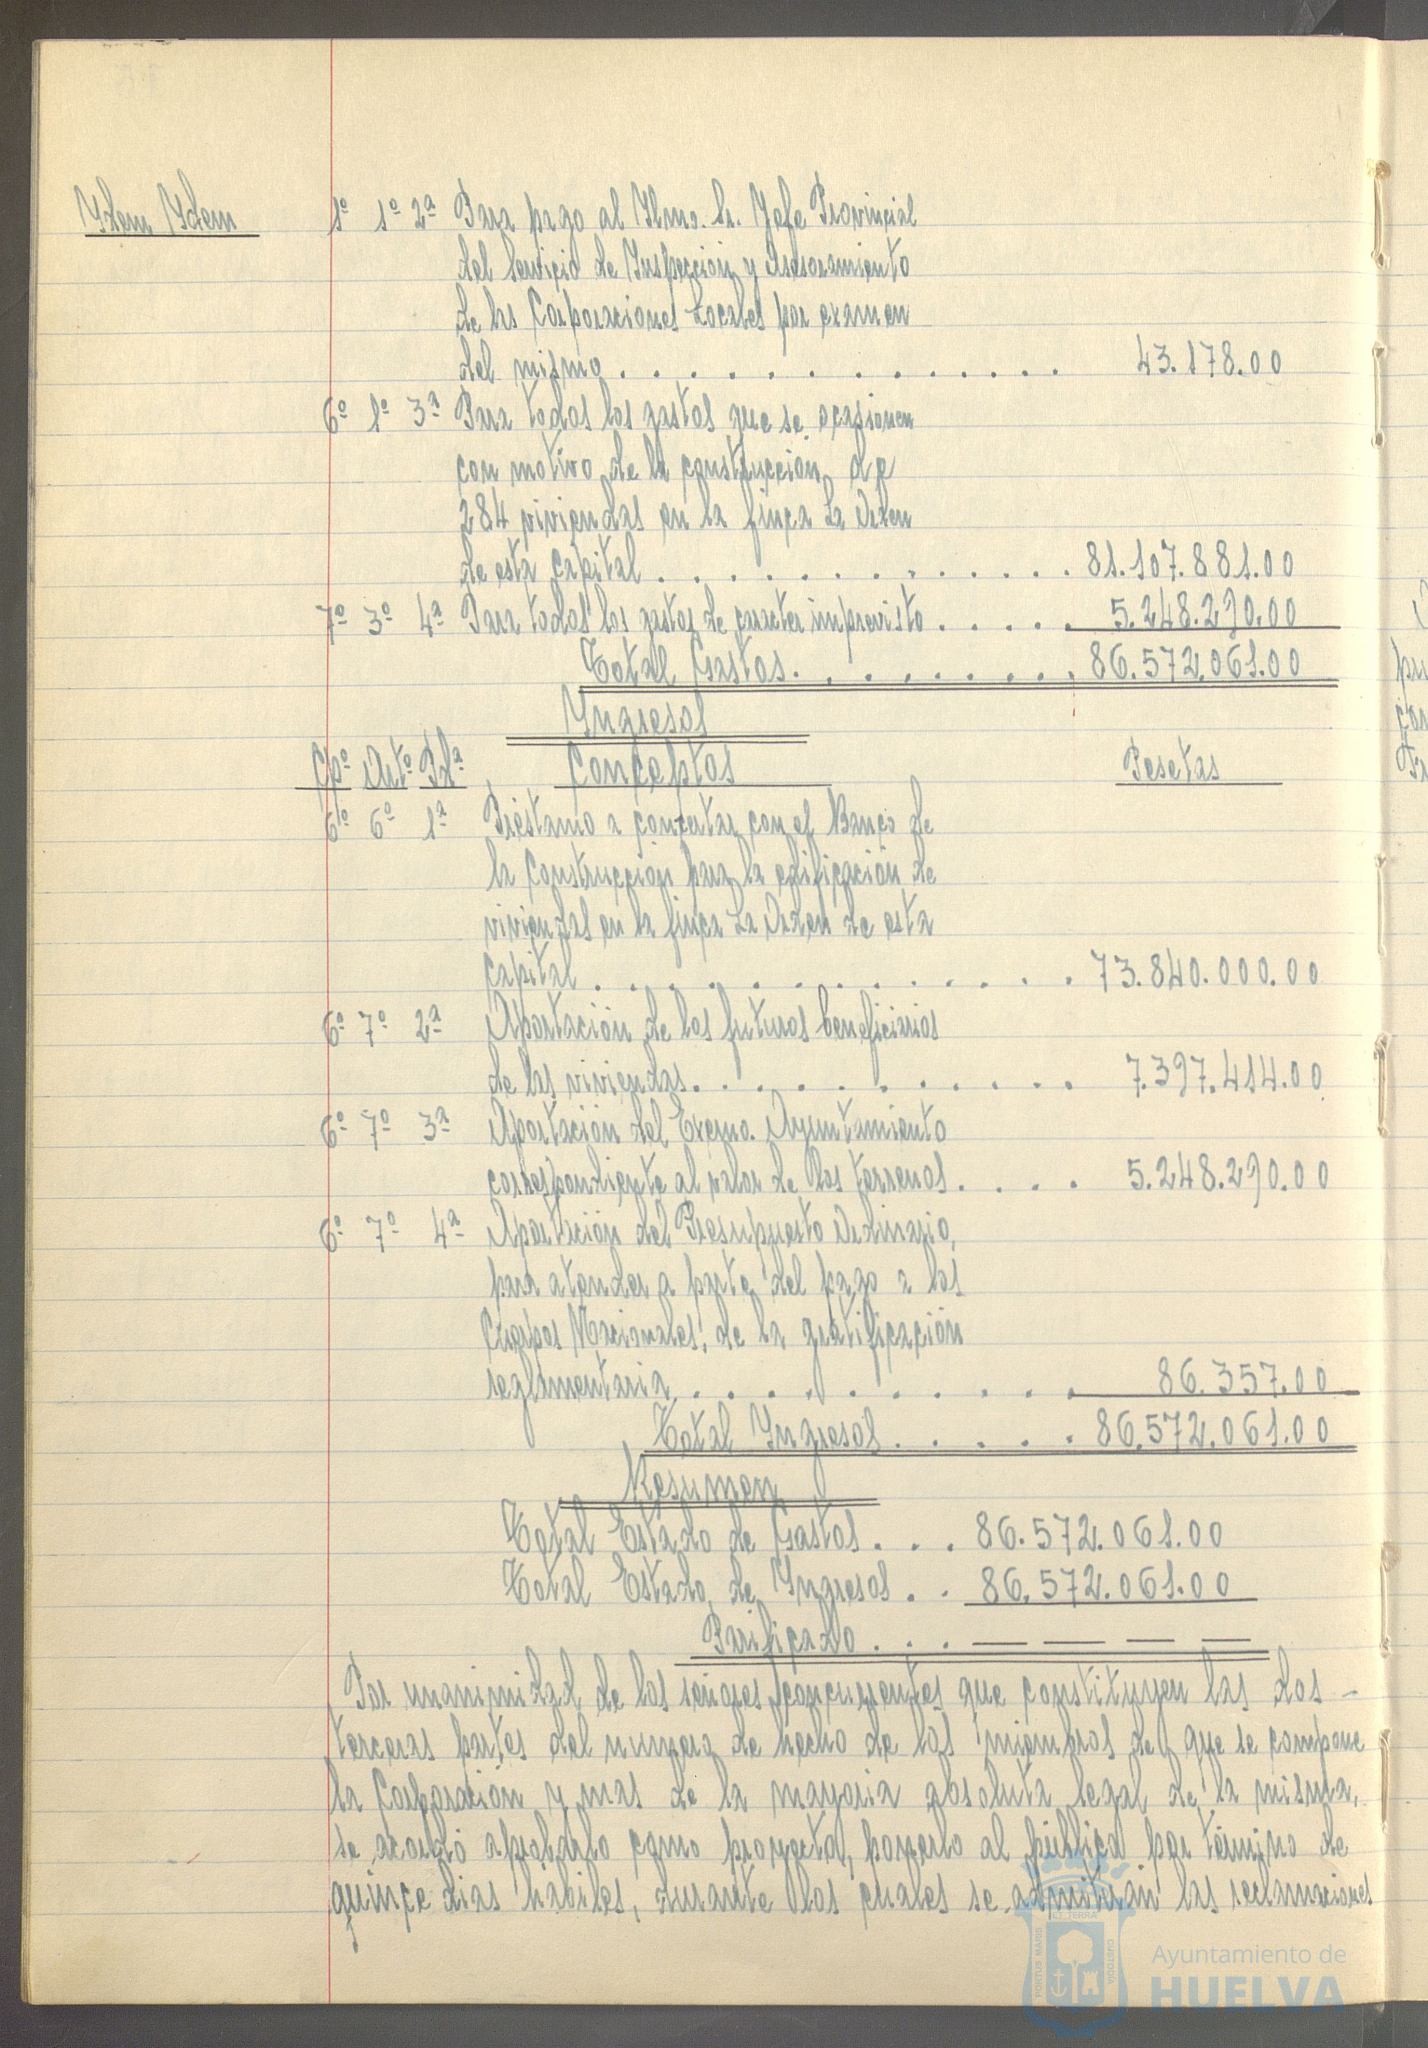 Ydem Ydem
1º 1º 2ª Para pago al Ylmo. Sr. Jefe Provincial
del Servicio de Ynspección y Asesoramiento
de las Corporaciones Locales por examen
del mismo . . . . . . . . . . . . . 43.178.00
6º 1º 3ª Para todos los gastos que se ocasionen
con motivo de la construcción de
284 viviendas en la finca La Orden
de esta capital . . . . . . . . . . . . . 81.107.881.00
7º 3º 4ª Para todos los gastos de caracter imprevisto . . . . . 5.248.290.00
Total Gastos. . . . . . . . . 86.572.061.00
Yngresos
Cpº Artº Pdª Conceptos Pesetas
6º 6º 1ª Préstamo a concertar con el Banco de
la Construcción para la edificación de
viviendas en la finca La Orden de esta
capital . . . . . . . . . . . . . 73.840.000.00
6º 7º 2ª Aportación de los futuros beneficiarios
de las viviendas. . . . . . . . . . . 7.397.414.00
6º 7º 3ª Aportación del Excmo. Ayuntamiento
correspondiente al valor de los terrenos. . . . 5.248.290.00
6º 7º 4ª Aportación del Presupuesto Ordinario,
para atender a parte del pago a los
Cuerpos Nacionales, de la gratificación
reglamentaria . . . . . . . . . . 86.357.00
Total Yngresos . . . . . 86.572.061.00
Resumen
Total Estado de Gastos . . . 86.572.061.00
Total Estado de Yngresos . . 86.572.061.00
Parificado . . . — — — —
Por unanimidad de los señores concurrentes que constituyen las dos –
terceras partes del numero de hecho de los miembros de que se compone
la Corporación y mas de la mayoria absoluta legal de la misma,
se acordó aprobarlo como proyecto, ponerlo al público por término de
quince dias habiles, durante los cuales se admitirán las reclamaciones
PORTUS MARIS ET TERRA CUSTODIA
Ayuntamiento de
HUELVA